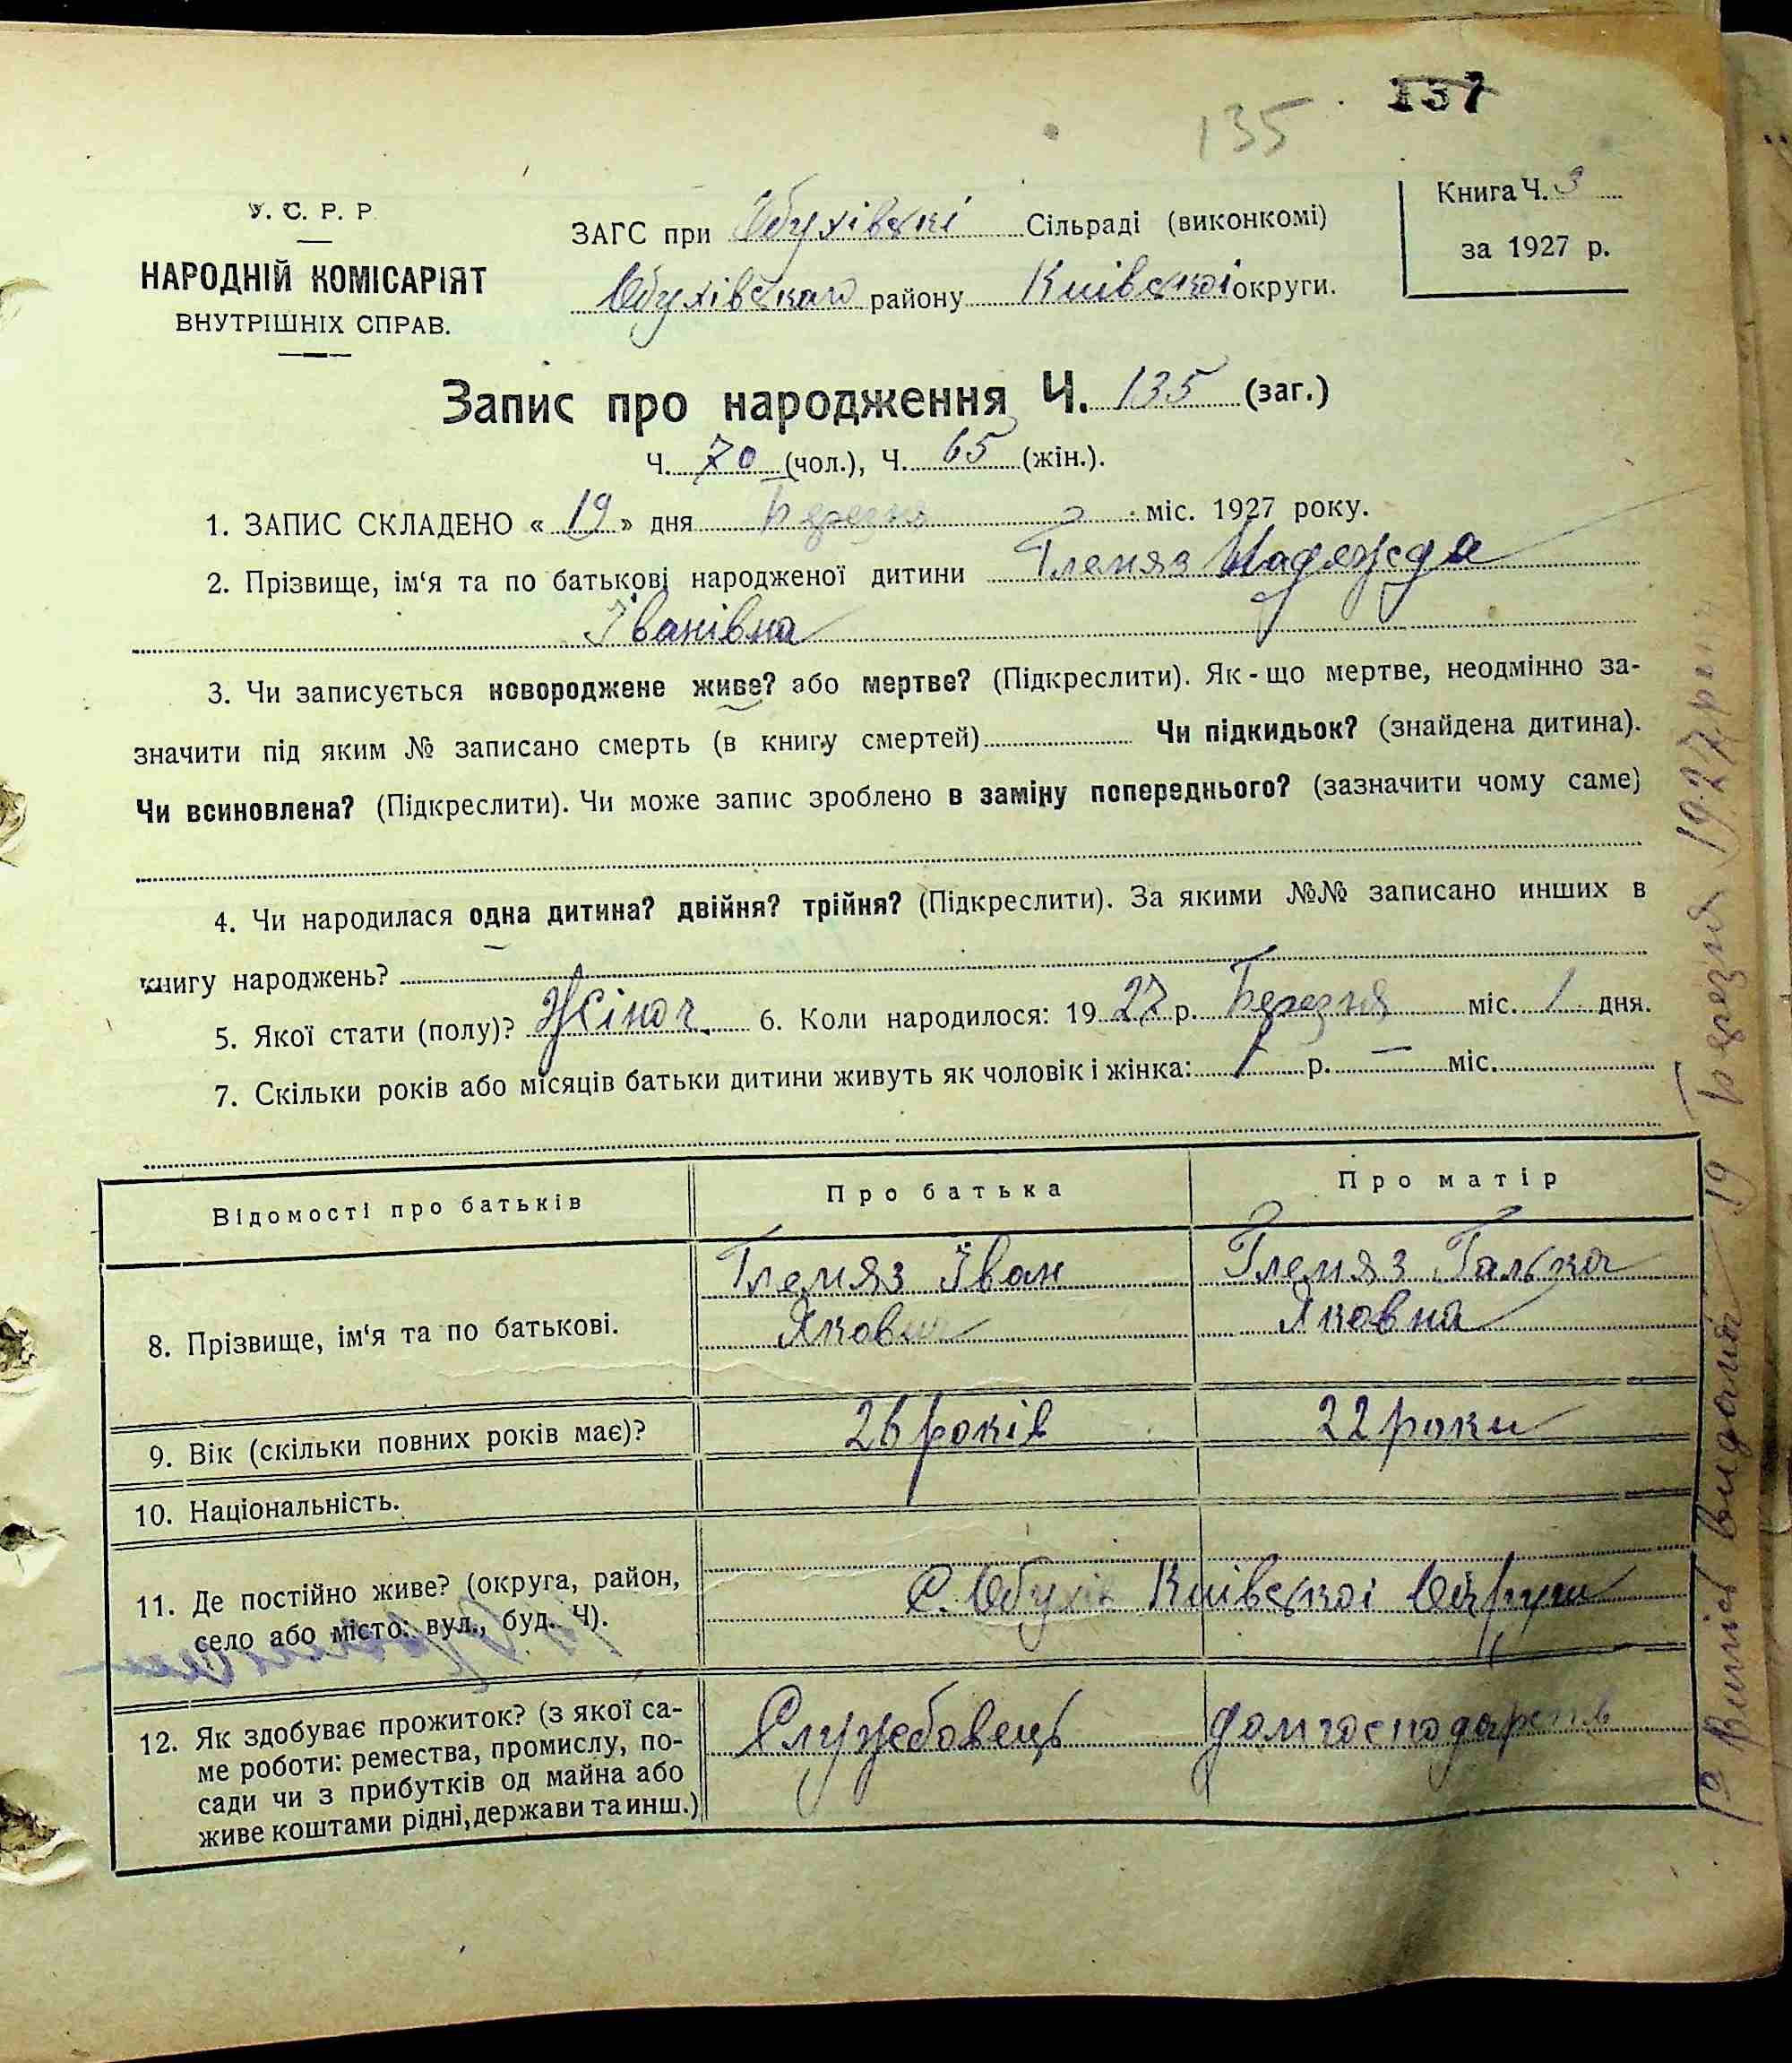 137
135
У. С. Р. Р.
НАРОДНІЙ КОМІСАРІЯТ
ВНУТРІШНІХ СПРАВ.
ЗАГС при Обухівскі Сільраді (виконкомі)
Обухівскаго району Київскоі округи.
Книга Ч. 3
за 1927 р.
Запис про народження Ч. 135 (заг.)
Ч. 70 (чол.), Ч. 65 (жін.).
1. ЗАПИС СКЛАДЕНО « 19 » дня Березня міс. 1927 року.
2. Прізвище, ім‘я та по батькові народженої дитини Глемяз Надежда
Іванівна
3. Чи записується новороджене живе? або мертве? (Підкреслити). Як-що мертве, неодмінно за-
значити під яким № записано смерть (в книгу смертей) Чи підкидьок? (знайдена дитина).
Чи всиновлена? (Підкреслити). Чи може запис зроблено в заміну попереднього? (зазначити чому саме)
4. Чи народилася одна дитина? двійня? трійня? (Підкреслити). За якими №№ записано инших в
книгу народжень?
5. Якої стати (полу)? Жіноч. 6. Коли народилося: 19 27 р. Березня міс. 1 дня.
7. Скільки років або місяців батьки дитини живуть як чоловік і жінка: 7 р. — міс.
Відомості про батьків Про батька Про матір
8. Прізвище, ім‘я та по батькові. Глемяз Іван Глемяз Галька
Яковна
9. Вік (скільки повних років має)? 26 років 22 роки
10. Національність.
11. Де постійно живе? (округа, район,
село або місто: вул., буд. Ч).
С. Обухів Київскоі Округи
12. Як здобуває прожиток? (з якої са-
ме роботи: ремества, промислу, по-
сади чи з прибутків од майна або
живе коштами рідні, держави та инш.)
Службовець домгосподарств
Випіс виданий 19 Березня 1927 року